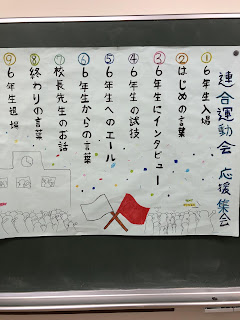 連合運動会 応援集会
①6年生入場
②はじめの言葉
③6年生にインタビュー
④6年生の試技
⑤6年生へのエール
⑥6年生からの言葉
⑦校長先生のお話
⑧終わりの言葉
⑨6年生退場